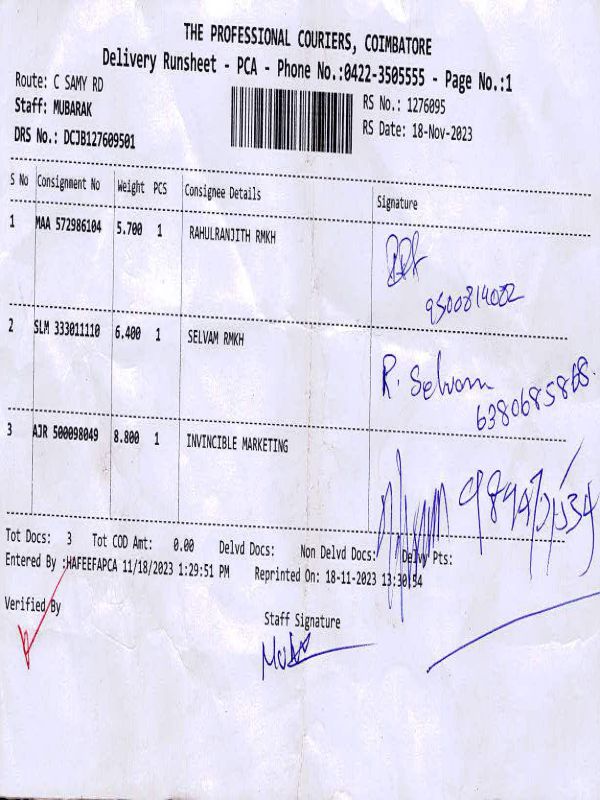 THE PROFESSIONAL COURIERS, COIMBATORE
Delivery Runsheet - PCA - Phone No.:0422-3505555 - Page No.:1
Route: C SAMY RD
RS No.: 1276095
Staff: MUBARAK
RS Date: 18-Nov-2023
DRS No.: DCJB127609501
S No Consignment No Weight PCS Consignee Details Signature
1 MAA 572986104 5.700 1 RAHULRANJITH RMKH
9500814022
2 SLM 333011110 6.400 1 SELVAM RMKH
R. Selvam
3 AJR 500098049 8.800 1 INVINCIBLE MARKETING
Tot Docs: 3 Tot COD Amt: 0.00 Delvd Docs: Non Delvd Docs: Delvy Pts:
Entered By :HAFEEFAPCA 11/18/2023 1:29:51 PM Reprinted On: 18-11-2023 13:30:54
Verified By
Staff Signature